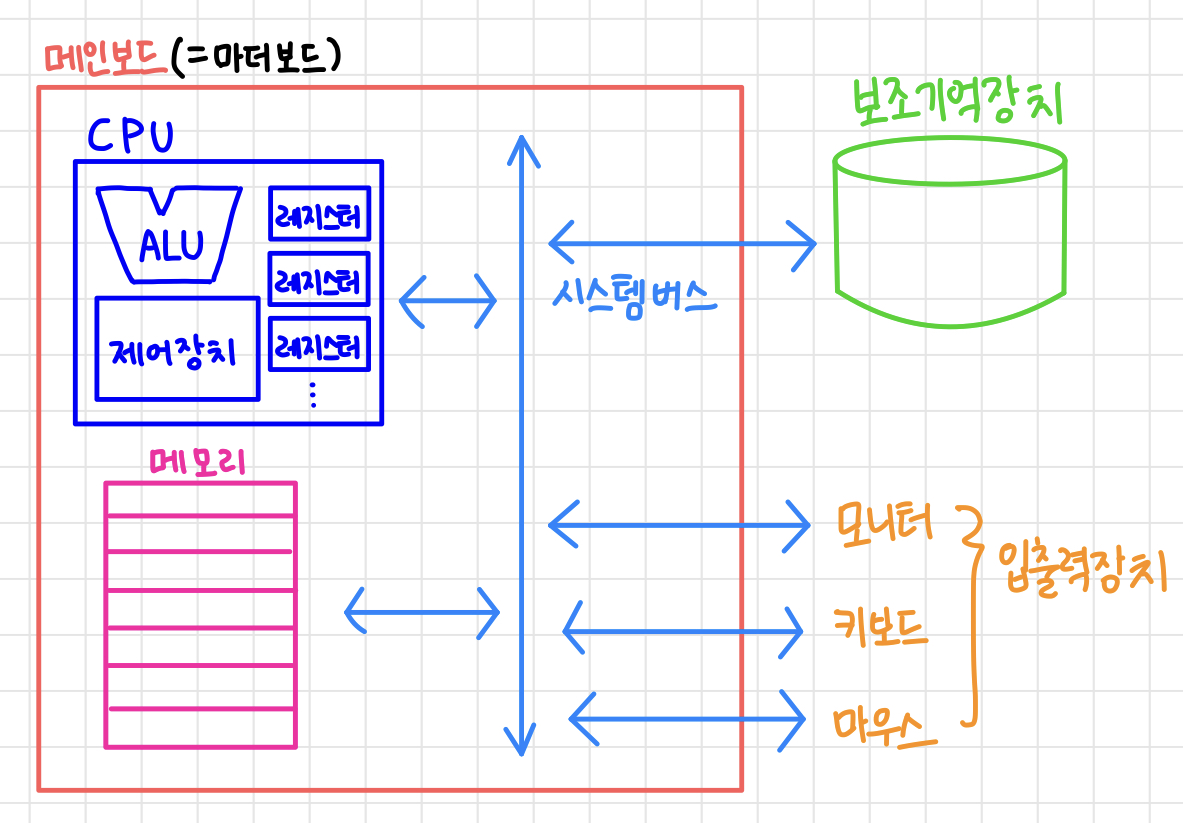 메인보드(=마더보드)
CPU
ALU
레지스터
레지스터
레지스터
⋮
제어장치
메모리
시스템버스
보조기억장치
모니터
키보드
마우스
입출력장치